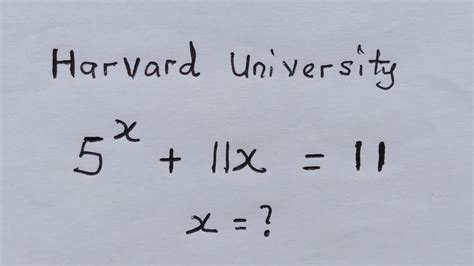 Harvard University
5^x + 11x = 11
x = ?